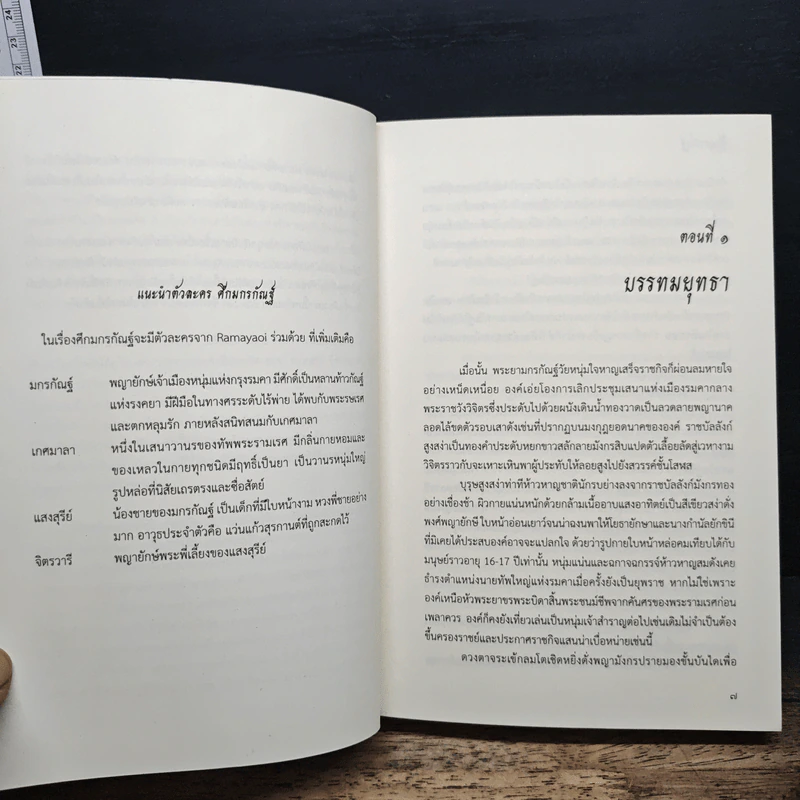 24
23
22
แนะนำตัวละคร ศึกมกรกัณฐ์
ในเรื่องศึกมกรกัณฐ์จะมีตัวละครจาก Ramayaoi ร่วมด้วย ที่เพิ่มเติมคือ
มกรกัณฐ์ พญายักษ์เจ้าเมืองหนุ่มแห่งกรุงรมคา มีศักดิ์เป็นหลานท้าวกัณฐ์
แห่งรงคยา มีฝีมือในทางศรระดับไร้พ่าย ได้พบกับพระรษเรศ
และตกหลุมรัก ภายหลังสนิทสนมกับเกศมาลา
เกศมาลา หนึ่งในเสนาวานรของทัพพระรามเรศ มีกลิ่นกายหอมและ
ของเหลวในกายทุกชนิดมีฤทธิ์เป็นยา เป็นวานรหนุ่มใหญ่
รูปหล่อที่นิสัยเถรตรงและซื่อสัตย์
แสงสุรีย์ น้องชายของมกรกัณฐ์ เป็นเด็กที่มีใบหน้างาม หวงพี่ชายอย่าง
มาก อาวุธประจำตัวคือ แว่นแก้วสุรกานต์ที่ถูกสะกดไว้
จิตรวารี พญายักษ์พระพี่เลี้ยงของแสงสุรีย์
ตอนที่ ๑
บรรทมยุทธา
เมื่อนั้น พระยามกรกัณฐ์วัยหนุ่มใจหาญเสร็จราชกิจก็ผ่อนลมหายใจ
อย่างเหน็ดเหนื่อย องค์เอ่ยโองการเลิกประชุมเสนาแห่งเมืองรมคากลาง
พระราชวังวิจิตรซึ่งประดับไปด้วยผนังเดินน้ำทองวาดเป็นลวดลายพญานาค
ลอดไล้ขดตัวรอบเสาดังเช่นที่ปรากฏบนมงกุฎยอดนาคของององค์ ราชบัลลังก์
สูงสง่าเป็นทองคำประดับหยกขาวสลักลายมังกรสิบแปดตัวเลื้อยลัดสู่เวหางาม
วิจิตรราวกับจะเหาะเหินพาผู้ประทับให้ลอยสูงไปยังสวรรค์ชั้นโสฬส
บุรุษสูงสง่าท่าทีห้าวหาญชาตินักรบย่างลงจากราชบัลลังก์มังกรทอง
อย่างเชื่องช้า ผิวกายแน่นหนักด้วยกล้ามเนื้ออาบแสงอาทิตย์เป็นสีเขียวสง่าดั่ง
พงศ์พญายักษี ใบหน้าอ่อนเยาว์จนน่าฉงนพาให้โยธายักษาและนางกำนัลยักขินี
ที่มิเคยได้ประสบองค์อาจจะแปลกใจ ด้วยว่ารูปกายใบหน้าหล่อคมเทียบได้กับ
มนุษย์ราวอายุ 16-17 ปีเท่านั้น หนุ่มแน่นและฉกาจฉกรรจ์ห้าวหาญสมดังเคย
ธำรงตำแหน่งนายทัพใหญ่แห่งรมคาเมื่อครั้งยังเป็นยุพราช หากไม่ใช่เพราะ
องค์เหนือหัวพระยาขรพระบิดาสิ้นพระชนม์ชีพจากคันศรของพระรามเรศก่อน
เพลาควร องค์ก็คงยังเที่ยวเล่นเป็นหนุ่มเจ้าสำราญต่อไปเช่นเดิมไม่จำเป็นต้อง
ขึ้นครองราชย์และประกาศราชกิจแสนน่าเบื่อหน่ายเช่นนี้
ดวงตาจระเข้กลมโตเชิดหยิ่งดั่งพญามังกรปรายมองชั้นบันไดเพื่อ
๗